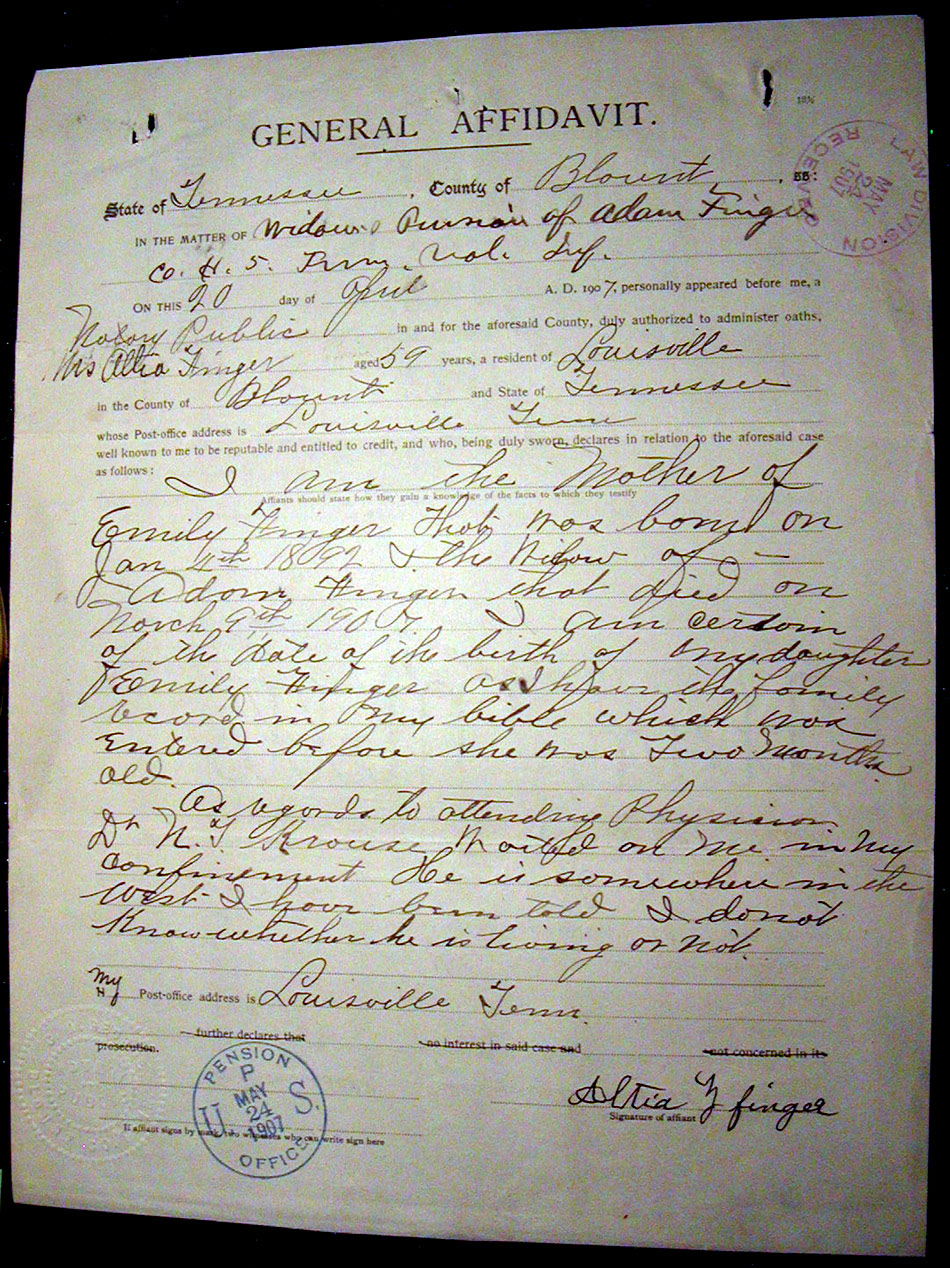 GENERAL AFFIDAVIT.
State of Tennessee, County of Blount, ss:
IN THE MATTER OF Widows Pension of Adam Finger
Co. H. 5. Tenn. Vol. Inf.
ON THIS 20 day of April A. D. 1907, personally appeared before me, a
Notary Public in and for the aforesaid County, duly authorized to administer oaths,
Mrs Altia Finger aged 59 years, a resident of Louisville
in the County of Blount and State of Tennessee
whose Post-office address is Louisville Tenn
well known to me to be reputable and entitled to credit, and who, being duly sworn, declares in relation to the aforesaid case
as follows:
I am the Mother of
Affiants should state how they gain a knowledge of the facts to which they testify
Emily Finger that was born on
Jan 4th 1892 & the Widow of
Adam Finger that died on
March 9th 1907. I am certain
of the date of the birth of my daughter
Emily Finger as I have the family
record in my bible which was
Entered before she was Two Months
old.
As regards to attending Physician
Dr N. T. Krouse Waited on me in my
confinement He is somewhere in the
West I have been told I do not
Know whether he is living or not.
My
H Post-office address is Louisville Tenn.
further declares that no interest in said case and not concerned in its
prosecution.
Altia Z finger
Signature of affiant
If affiant signs by mark, two witnesses who can write sign here
LAW DIVISION
RECEIVED
MAY
24
1907
PENSION
P
MAY
24
1907
U S.
OFFICE